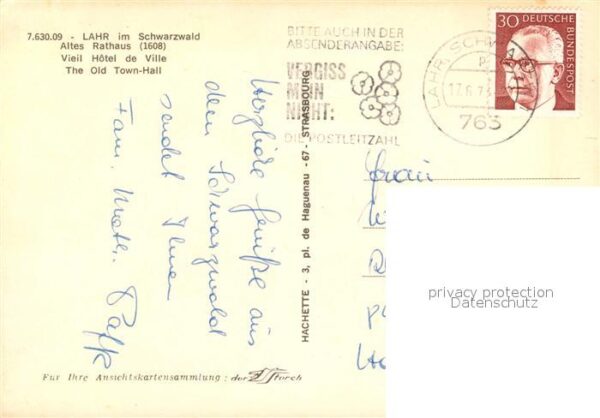 7.630.09 - LAHR im Schwarzwald
Altes Rathaus (1608)
Vieil Hôtel de Ville
The Old Town-Hall
BITTE AUCH IN DER
ABSENDERANGABE:
VERGISS
MEIN
NICHT:
DIE POSTLEITZAHL
LAHR, SCHWARZW
17.6.7
763
30 DEUTSCHE
BUNDESPOST
Herzliche Grüße aus
dem Schwarzwald
sendet Ihnen
Fam.
HACHETTE - 3, pl. de Haguenau -67- STRASBOURG
Frau
privacy protection
Datenschutz
Für Ihre Ansichtskartensammlung : der Storch